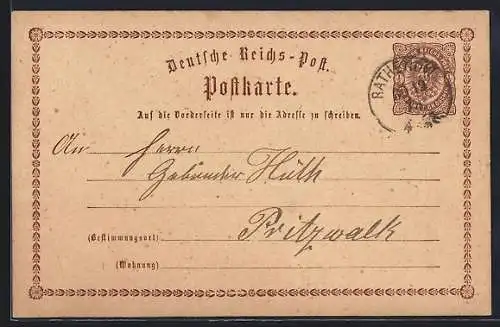 Deutsche Reichs-Post.
Postkarte.
RATHENOW
19
Auf die Vorderseite ist nur die Adresse zu schreiben.
An Herrn
Gebrüder Hüth
Pritzwalk
(Bestimmungsort)
(Wohnung)